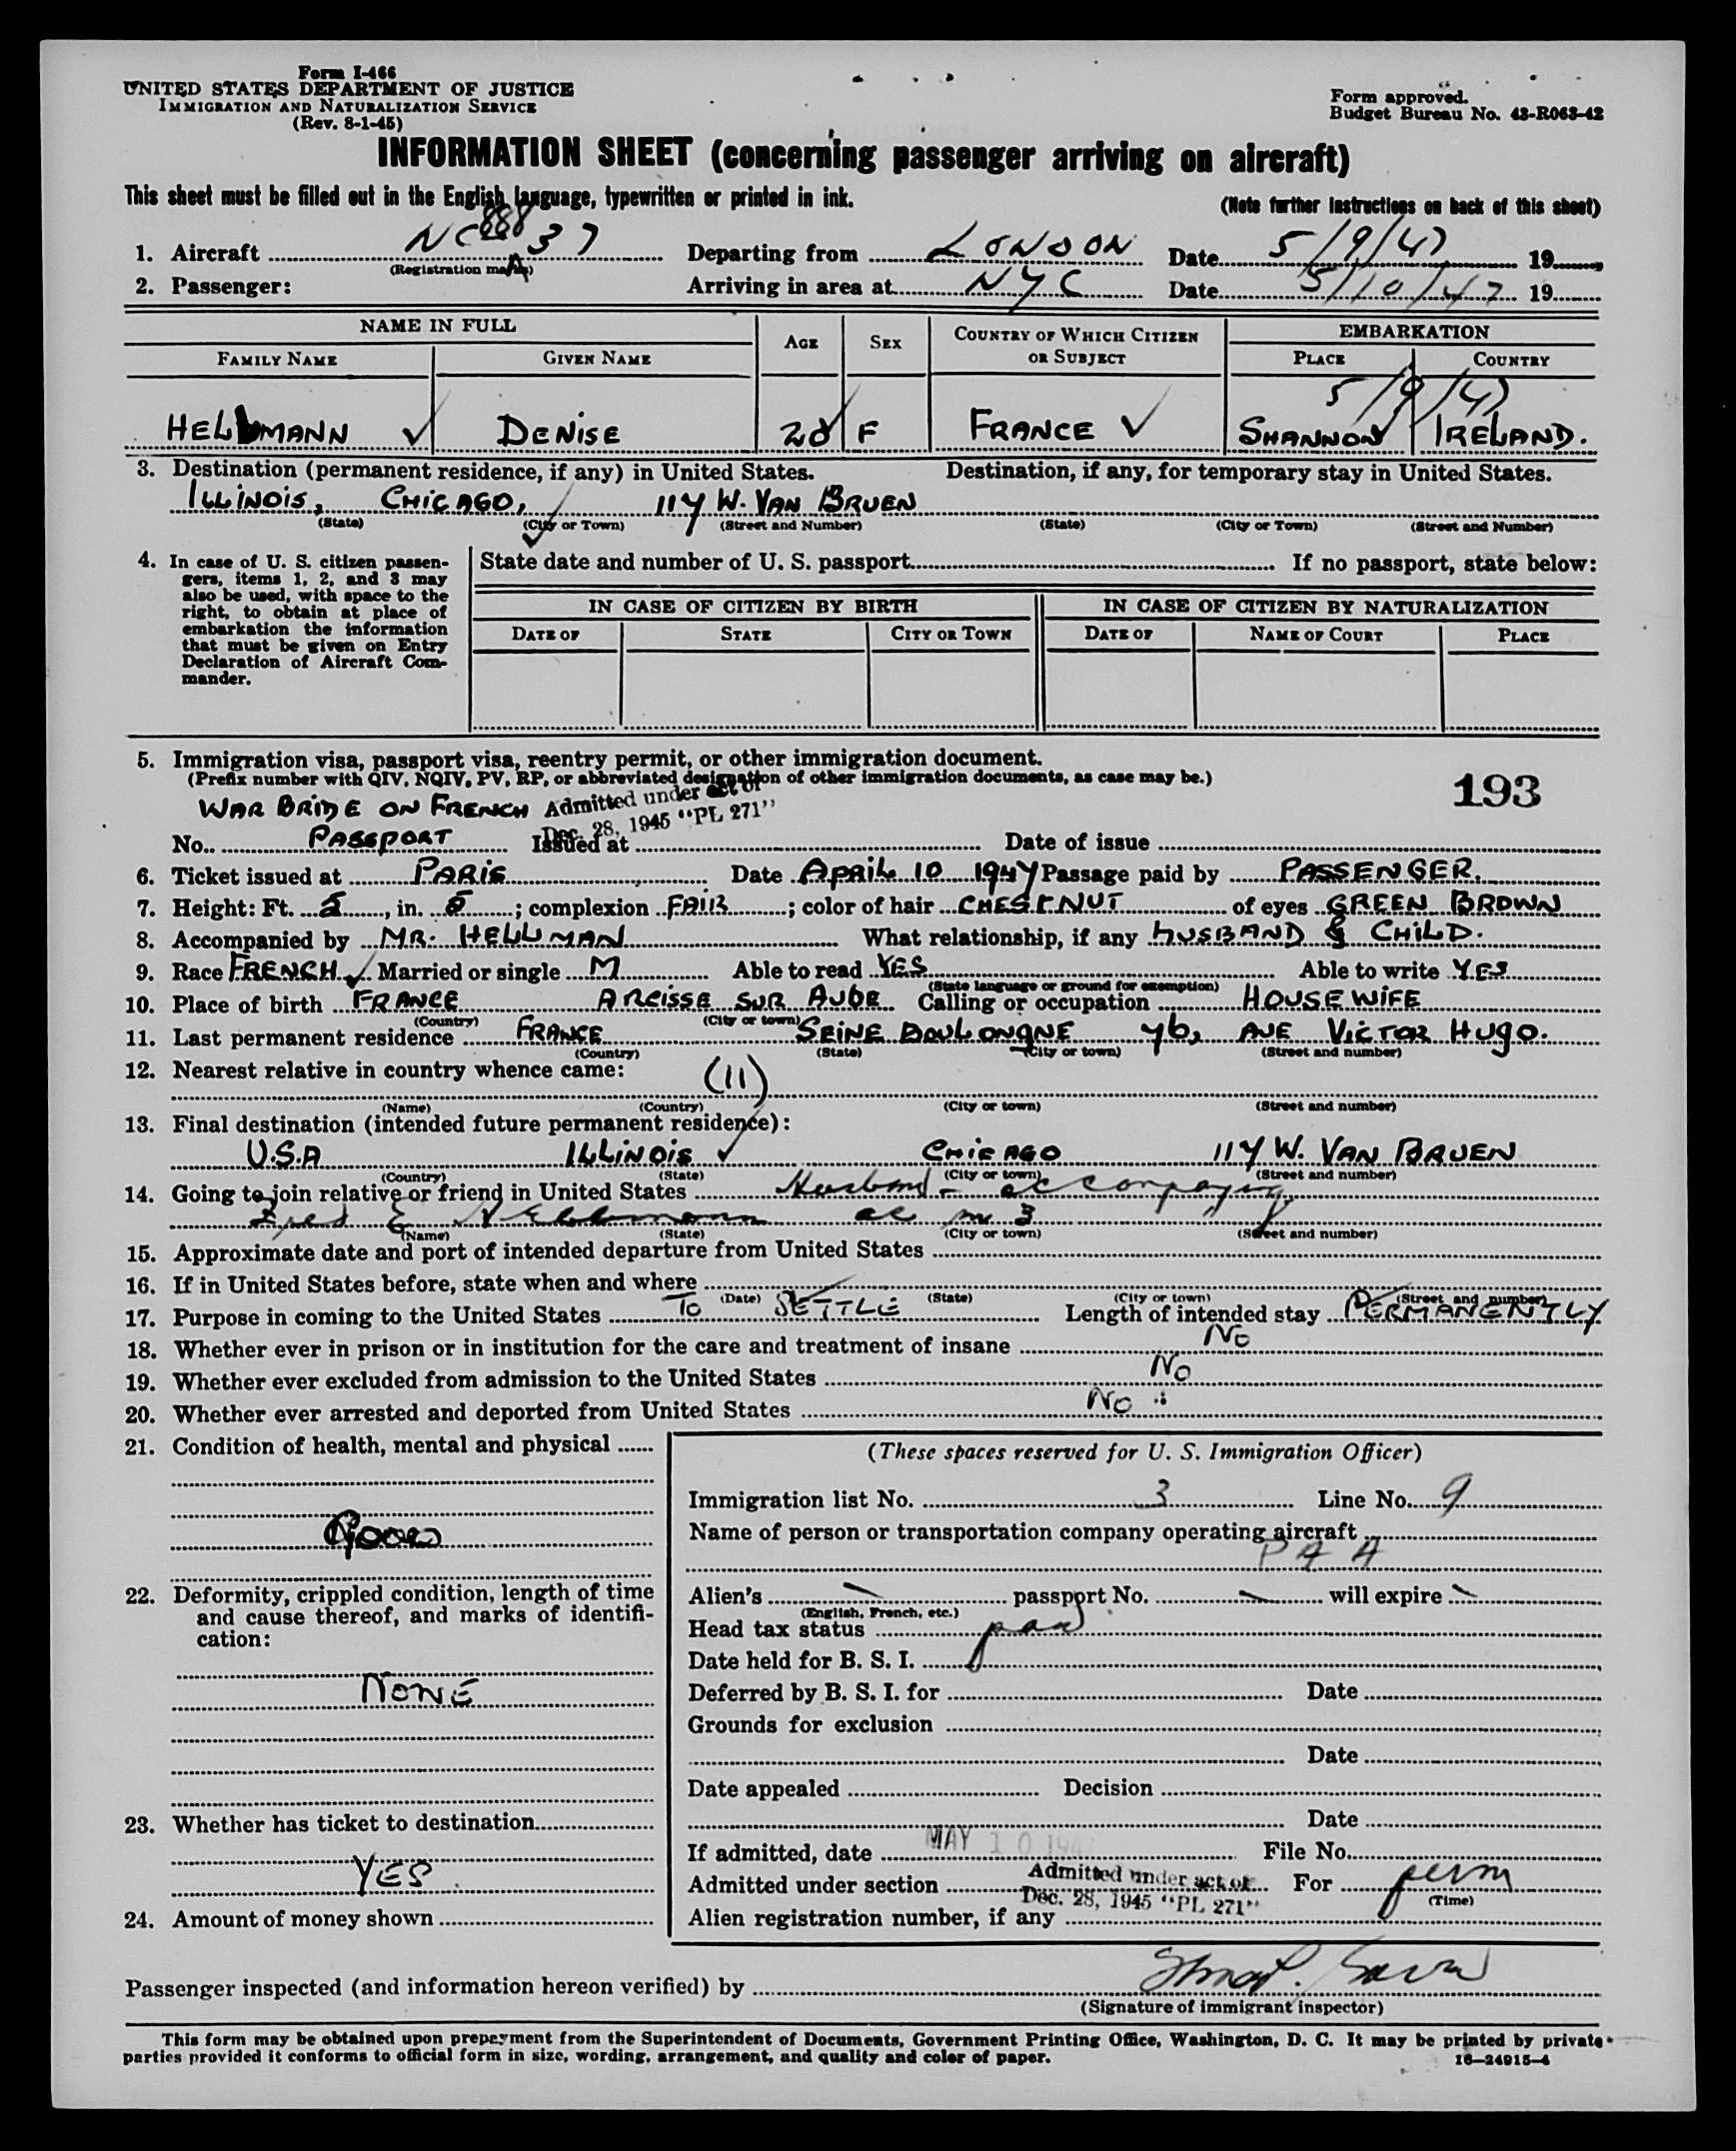 Form I-466
UNITED STATES DEPARTMENT OF JUSTICE
IMMIGRATION AND NATURALIZATION SERVICE
(Rev. 8-1-45)
Form approved.
Budget Bureau No. 43-R063-42
INFORMATION SHEET (concerning passenger arriving on aircraft)
This sheet must be filled out in the English language, typewritten or printed in ink.
(Note further instructions on back of this sheet)
1. Aircraft NC 88837 A Departing from LONDON Date 5/9/47 19
(Registration marks)
2. Passenger: Arriving in area at NYC Date 5/10/47 19
NAME IN FULL AGE SEX COUNTRY OF WHICH CITIZEN OR SUBJECT EMBARKATION
FAMILY NAME GIVEN NAME PLACE COUNTRY
5/9/47
HELLMANN ✓ DENISE 20 F FRANCE ✓ SHANNON IRELAND.
3. Destination (permanent residence, if any) in United States. Destination, if any, for temporary stay in United States.
ILLINOIS, CHICAGO, 117 W. VAN BRUEN
(State) (City or Town) (Street and Number) (State) (City or Town) (Street and Number)
4. In case of U. S. citizen passengers, items 1, 2, and 3 may also be used, with space to the right, to obtain at place of embarkation the information that must be given on Entry Declaration of Aircraft Commander.
State date and number of U. S. passport If no passport, state below:
IN CASE OF CITIZEN BY BIRTH IN CASE OF CITIZEN BY NATURALIZATION
DATE OF STATE CITY OR TOWN DATE OF NAME OF COURT PLACE
5. Immigration visa, passport visa, reentry permit, or other immigration document.
(Prefix number with QIV, NQIV, PV, RP, or abbreviated designation of other immigration documents, as case may be.)
193
WAR BRIDE ON FRENCH Admitted under act of
Dec. 28, 1945 "PL 271"
No. PASSPORT Issued at Date of issue
6. Ticket issued at PARIS Date APRIL 10 1947 Passage paid by PASSENGER.
7. Height: Ft. 5, in. 5; complexion FAIR; color of hair CHESTNUT of eyes GREEN BROWN
8. Accompanied by MR. HELLMAN What relationship, if any HUSBAND & CHILD.
9. Race FRENCH ✓ Married or single M Able to read YES Able to write YES
(State language or ground for exemption)
10. Place of birth FRANCE ARCISSE SUR AUBE Calling or occupation HOUSEWIFE
(Country) (City or town)
11. Last permanent residence FRANCE SEINE BOULONGNE 76, AVE VICTOR HUGO.
(Country) (State) (City or town) (Street and number)
12. Nearest relative in country whence came: (11)
(Name) (Country) (City or town) (Street and number)
13. Final destination (intended future permanent residence):
U.S.A ILLINOIS ✓ CHICAGO 117 W. VAN BRUEN
(Country) (State) (City or town) (Street and number)
14. Going to join relative or friend in United States Husband - accompaying
Fred E Hellmann ac in 3
(Name) (State) (City or town) (Street and number)
15. Approximate date and port of intended departure from United States
16. If in United States before, state when and where
(Date) (State) (City or town) (Street and number)
17. Purpose in coming to the United States TO SETTLE Length of intended stay PERMANENTLY
18. Whether ever in prison or in institution for the care and treatment of insane NO
19. Whether ever excluded from admission to the United States NO
20. Whether ever arrested and deported from United States NO
21. Condition of health, mental and physical
GOOD
22. Deformity, crippled condition, length of time and cause thereof, and marks of identification:
NONE
23. Whether has ticket to destination
YES
24. Amount of money shown
(These spaces reserved for U. S. Immigration Officer)
Immigration list No. 3 Line No. 9
Name of person or transportation company operating aircraft
PAA
Alien's passport No. will expire
(English, French, etc.)
Head tax status
Date held for B. S. I.
Deferred by B. S. I. for Date
Grounds for exclusion
Date
Date appealed Decision
Date
If admitted, date MAY 10 194 File No.
Admitted under section Admitted under act of For perm
Dec. 28, 1945 "PL 271" (Time)
Alien registration number, if any
Passenger inspected (and information hereon verified) by
(Signature of immigrant inspector)
This form may be obtained upon prepayment from the Superintendent of Documents, Government Printing Office, Washington, D. C. It may be printed by private
parties provided it conforms to official form in size, wording, arrangement, and quality and color of paper.
16—24915-4